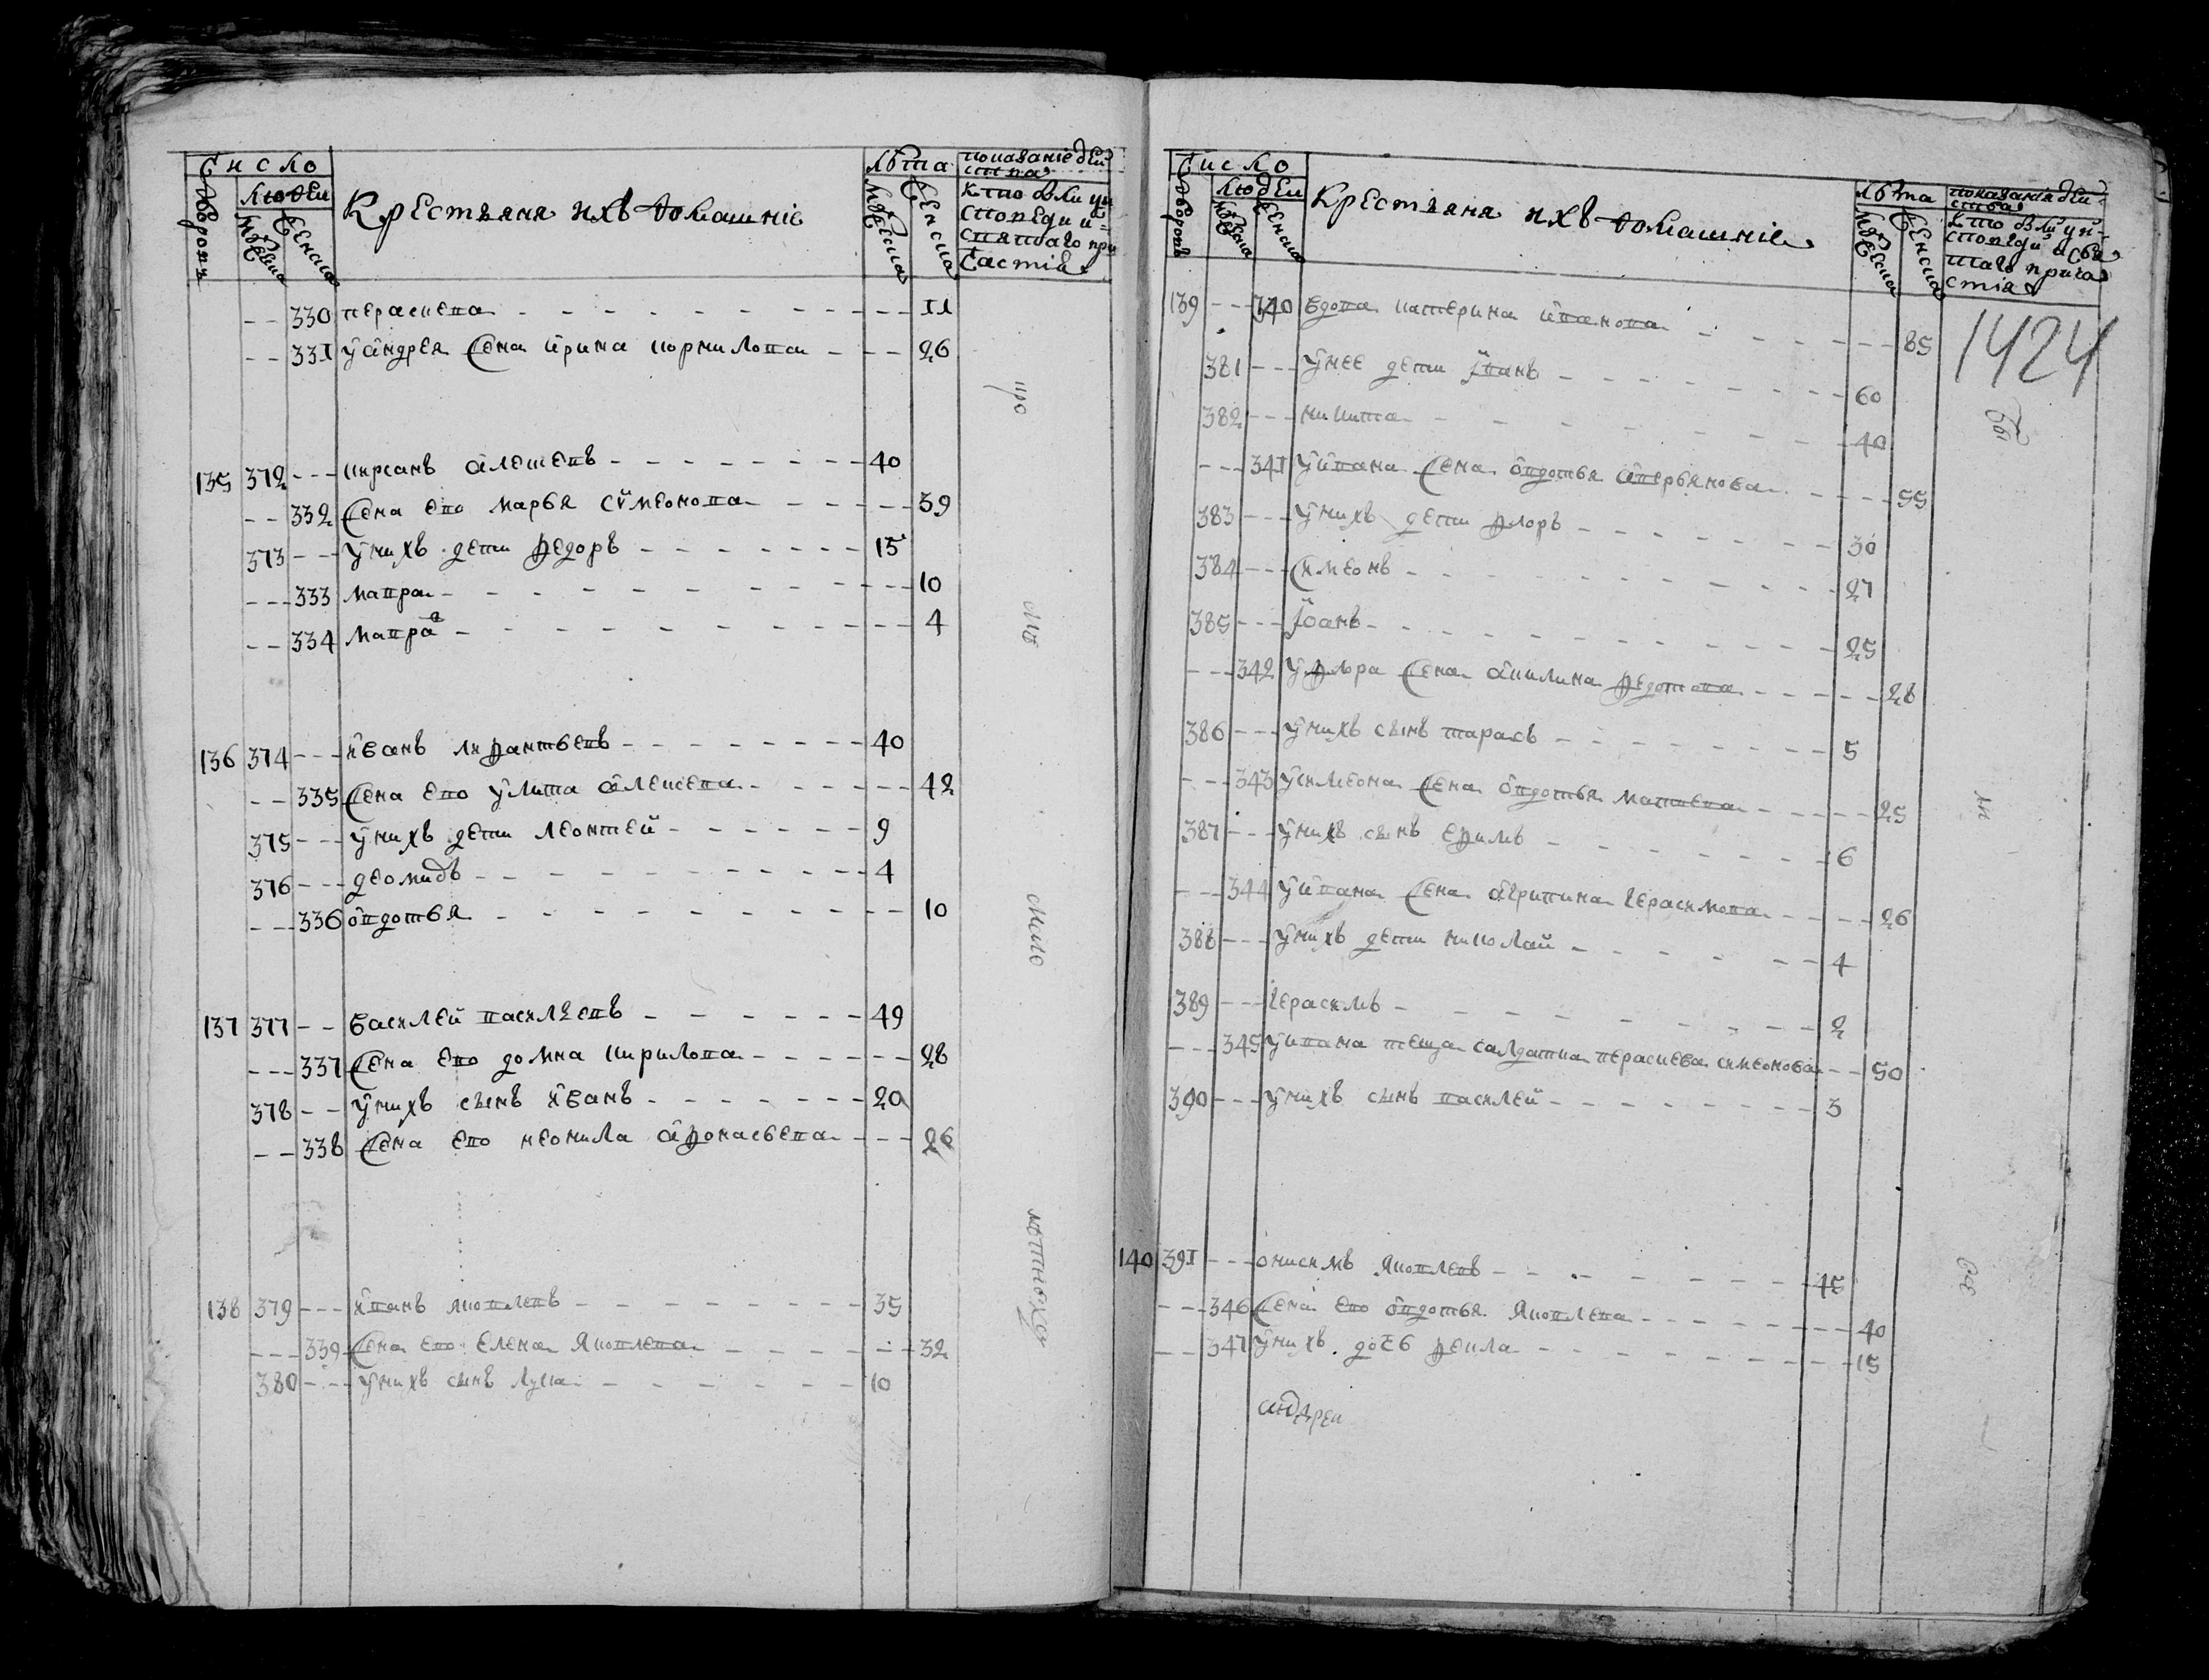 Число
дворовъ
людеи
мужеска
женска
Крестьяня ихъ домашніе
лѣта
мужеска
женска
показаніе деи
ства
кто былъ уи
споведи и
святаго при
частія
330 перасковя 11
331 у андрея жена ирина корнилова 26
135 372 кирсанъ алексѣевъ 40
332 жена ево марья сѵмеонова 39
373 у нихъ дети ѳедоръ 15
333 мавра 10
334 мавра 4
136 374 иванъ лиѳантьевъ 40
335 жена ево улита алексева 42
375 у нихъ дети леонтей 9
376 деомидъ 4
336 овдотья 10
137 377 василей васильевъ 49
337 жена ево домна кирилова 28
378 у нихъ сынъ иванъ 20
338 жена ево неонила аѳонасьева 26
138 379 иванъ яковлевъ 35
339 жена ево елена яковлева 32
380 у нихъ сынъ лука 10
Число
дворовъ
людеи
мужеска
женска
Крестьяня ихъ домашніе
лѣта
мужеска
женска
показанія деи
ства
кто былъ уи
споведи и свя
таго прича
стія
1424
139 340 вдова катерина иванова 85
381 у нее дети іванъ 60
382 никита 40
341 у ивана жена овдотья аверьянова 55
383 у нихъ дети ѳлоръ 30
384 симеонъ 27
385 іоанъ 25
342 у ѳлора жена акилина ѳедотова 28
386 у нихъ сынъ тарасъ 5
343 у симеона жена овдотья матвева 25
387 у нихъ сынъ еѳимъ 6
344 у ивана жена агрипина герасимова 26
388 у нихъ дети николай 4
389 герасимъ 2
345 у ивана теща салдатка перасковa симеонова 50
390 у нихъ сынъ василей 3
140 391 онисимъ яковлевъ 45
346 жена ево овдотья яковлева 40
347 у нихъ дочь ѳекла 15
андреи